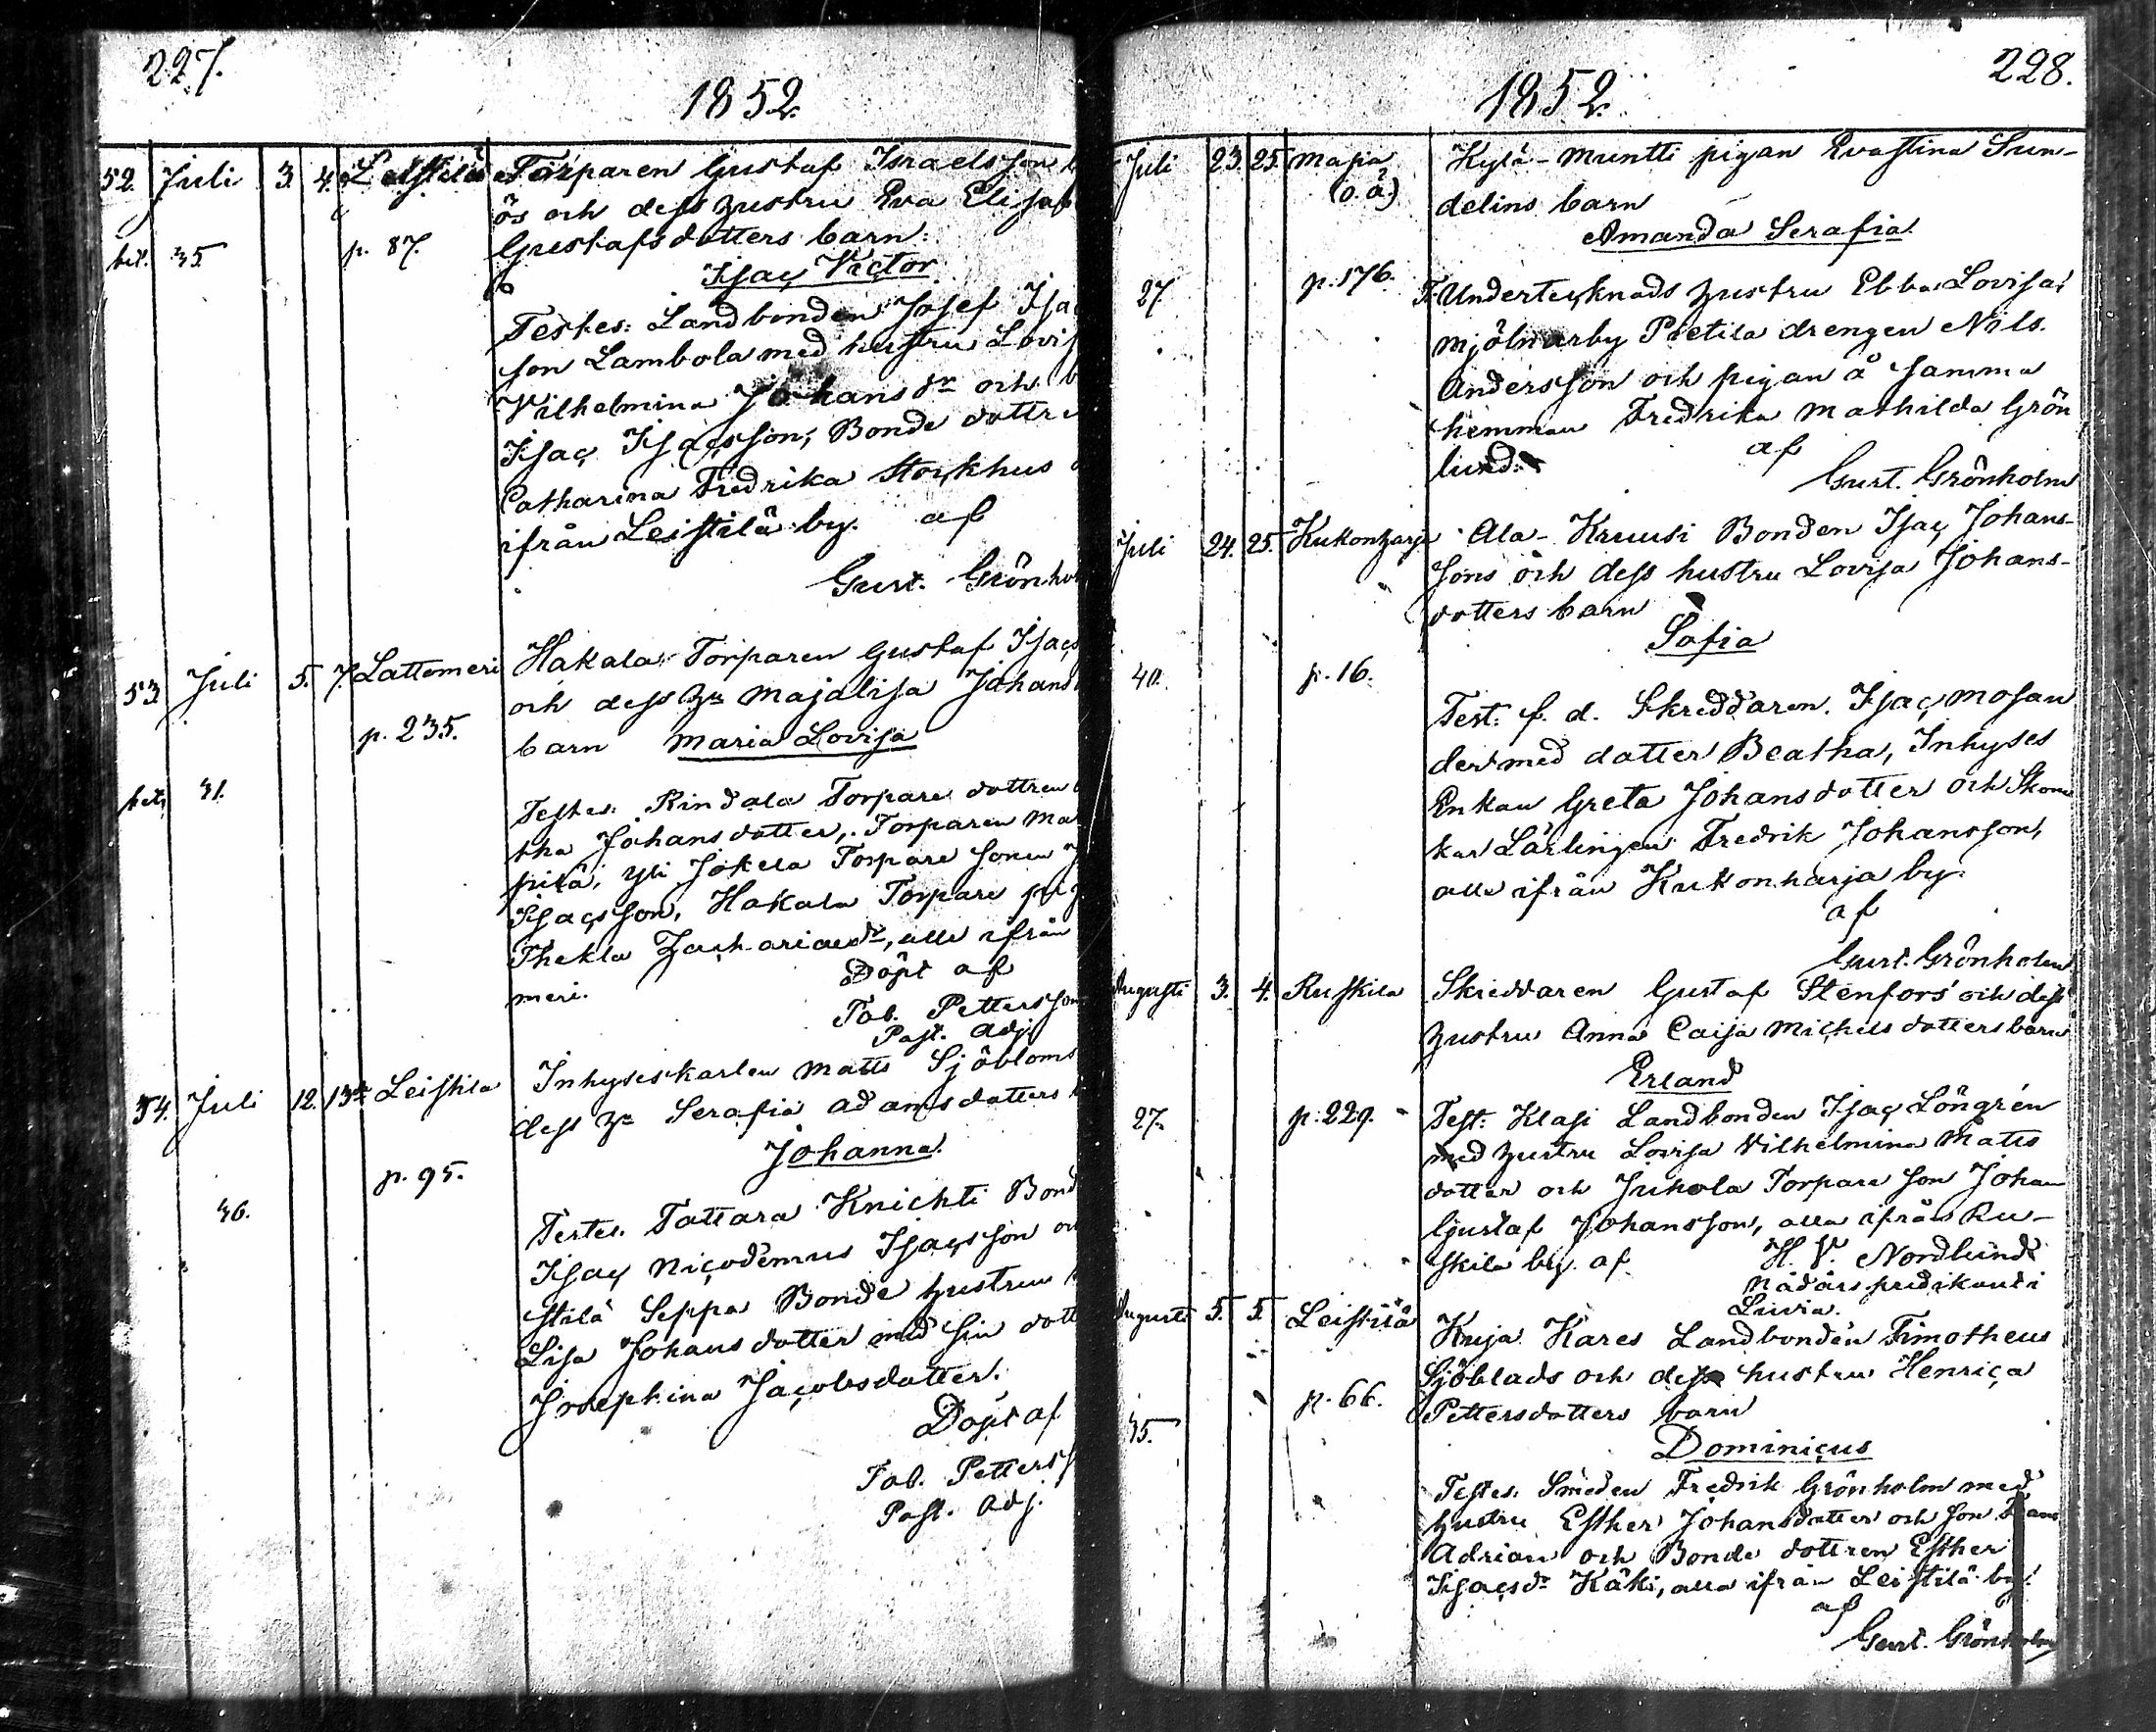 227.
1852.
52. Juli 3. 4. Leistilä Torparen Gustaf Israelsson
ös och dess hustru Eva Elisab
Gustafsdotters barn.
bet. 35. p. 87.
Isaç Victor
Testes: Landbonden Josef Isa
son Lambola med hustru Lovis
Vilhelmina Johansdr och
Isaç Isaçsson, Bonde dottre
Catharina Fredrika Storkhus
ifrån Leistilä by. af
Gust. Grönho
53. Juli 5. 7. Lattomeri Hakala Torparen Gustaf Isaçs
och dess hu Majalisa Johans
p. 235. barn Maria Lovisa
bet. 31.
Testes: Rindala Torpare dottren
tha Johansdotter, Torparen Ma
pitä, Yli Jokela Torpare sonen J
Isaçsson, Hakala Torpare
Thekla Zachariaedr, alla ifrån
meri. Döpt af
Tob. Pettersson
Past. Adj.
54. Juli 12. 13de Leistila Inhyseskarlen Matts Sjöbloms
dess hu Serafia Adamsdotters
Johanna.
p. 95.
36.
Testes. Tattara Knichti Bond
Isaç Niçodemus Isaçsson oc
stilä Seppa Bonde hustrun
Lisa Johansdotter med sin dott
Josephina Jaçobsdotter.
Döpt af
Tob. Petterss
Past. Adj.
228.
1852.
Juli 23. 25. Masia Kylä-Muntti pigan Evastina Sun-
(o. ä) delins barn
Amanda Serafia
27. p. 176. T. Underteçknads hustru Ebba Lovisa,
mjölnarby Pietila drengen Nils
Andersson och pigan å samma
hemman Fredrika Mathilda Grön
lund. af
Gust. Grönholm
Juli 24. 25. Kukonharja Ala-Kruusi Bonden Isaç Johans-
sons och dess hustru Lovisa Johans-
dotters barn
Sofia
40. p. 16.
Test: f. d. Skreddaren. Isaç Mosan
der med dotter Beatha, Inhyses
Enkan Greta Johansdotter och Skoma
kar Lärlingen Fredrik Johansson,
alla ifrån Kukonharja by.
af
Gust. Grönholm
Augusti 3. 4. Ruskila Skreddaren Gustaf Stenfors och dess
hustru Anna Caisa Michelsdotters barn
Erland
27. p. 229. Test: Klasi Landbonden Isaç Löngrén
med hustru Lovisa Vilhelmina Matts
dotter och Jukola Torpare son Johan
Gustaf Johansson, alla ifrån Ru-
skila by. af H. V. Nordlund
Nådårs predikant i
Luvia.
Augusti 5. 5. Leistilä Kuja Kares Landbonden Timotheus
Sjöblads och dess hustru Henriça
p. 66. Pettersdotters barn
35.
Dominiçus
Testes: Smeden Fredrik Grönholm med
hustru Esther Johansdotter och son Frans
Adrian och Bonde dottren Esther
Isaçsdr Käki, alla ifrån Leistilä by.
af
Gust. Grönholm